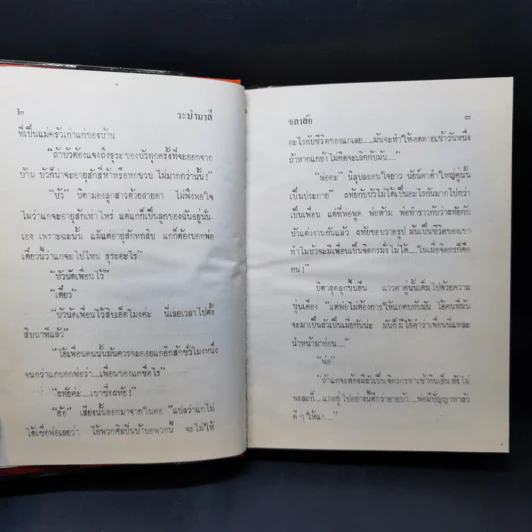 ๒ ระบำมาลี
ที่เป็นแม่ครัวเก่าแก่ของบ้าน
“ถ้าบัวต้องแจ้งถึงธุระของบัวทุกครั้งที่จะออกจาก
บ้าน บัวก็น่าจะอายุสักสี่ห้าหรือหกขวบ ไม่มากกว่านั้น!”
“บัว” บิดามองลูกสาวด้วยสายตา ไม่พึงพอใจ
ไม่ว่าแกจะอายุสักเท่าไหร่ แต่แกก็เป็นลูกของฉันอยู่นั่น-
เอง เพราะฉะนั้น แม้แต่อายุสักหกสิบ แกก็ต้องบอกพ่อ
เดี๋ยวนี้ว่าแกจะไปไหน ธุระอะไร”
“บัวนัดเพื่อนไว้”
“เดี๋ยว”
“บัวนัดเพื่อนไว้สิบเอ็ดโมงค่ะ นี่เลยเวลาไปตั้ง
สิบนาทีแล้ว”
“ไอ้เพื่อนคนนั้นมันควรจะคอยแกอีกสักชั่วโมงหนึ่ง
จนกว่าแกบอกพ่อว่า...เพื่อนของแกชื่อไร”
“สทัยค่ะ....เขาชื่อสทัย!”
“ฮ้อ” เสียงนั้นออกมาจากในคอ “แปลว่าแกไม่
ได้เชื่อพ่อเลยว่า ไอ้พวกศิลปินบ้าบอพวกนี้ จะไม่ให้
ชลาลัย ๓
อะไรกับชีวิตของแกเลย....มันจะทำให้อดตายเข้าวันหนึ่ง
ถ้าหากแกยังไม่คิดจะเลิกกับมัน....”
“พ่อคะ” นิ่วบลอนใจยาว นัยน์ตาดำใหญ่คู่นั้น
เป็นประกาย” สทัยกับบัวไม่ได้เป็นอะไรกันมากไปกว่า
เป็นเพื่อน แต่ที่พ่อพูด พ่อห้าม พ่อทำราวกับว่าสทัยกับ
บัวแต่งงานกันแล้ว สทัยชอบวาดรูป นั่นเป็นชีวิตของเขา
ทำไมบัวจะมีเพื่อนเป็นจิตกรมั่งไม่ได้....ในเมื่อจิตกรก็คือ
คน!”
บิดาสุดลูกขึ้นยืน แววตาคู่นั้นเป็นไปด้วยความ
ขุ่นเคือง “แต่พ่อไม่ต้องการให้แกคบกับมัน ไอ้คนที่มัน
จะมาเป็นตัวเป็นเมียกันน่ะ มันก็มีไอ้คำว่าเพื่อนนี่แหละ
นำหน้ามาก่อน....”
“พ่อ”
“ถ้าแกจะต้องมีผัวเป็นจิตกรหาเช้ากินเย็น ยังไม่
พอละก็....แกอยู่ไปอย่างนี้อีกรายยาบัว...พ่อมีปัญญาหาผัว
ดีๆ ให้แก....”